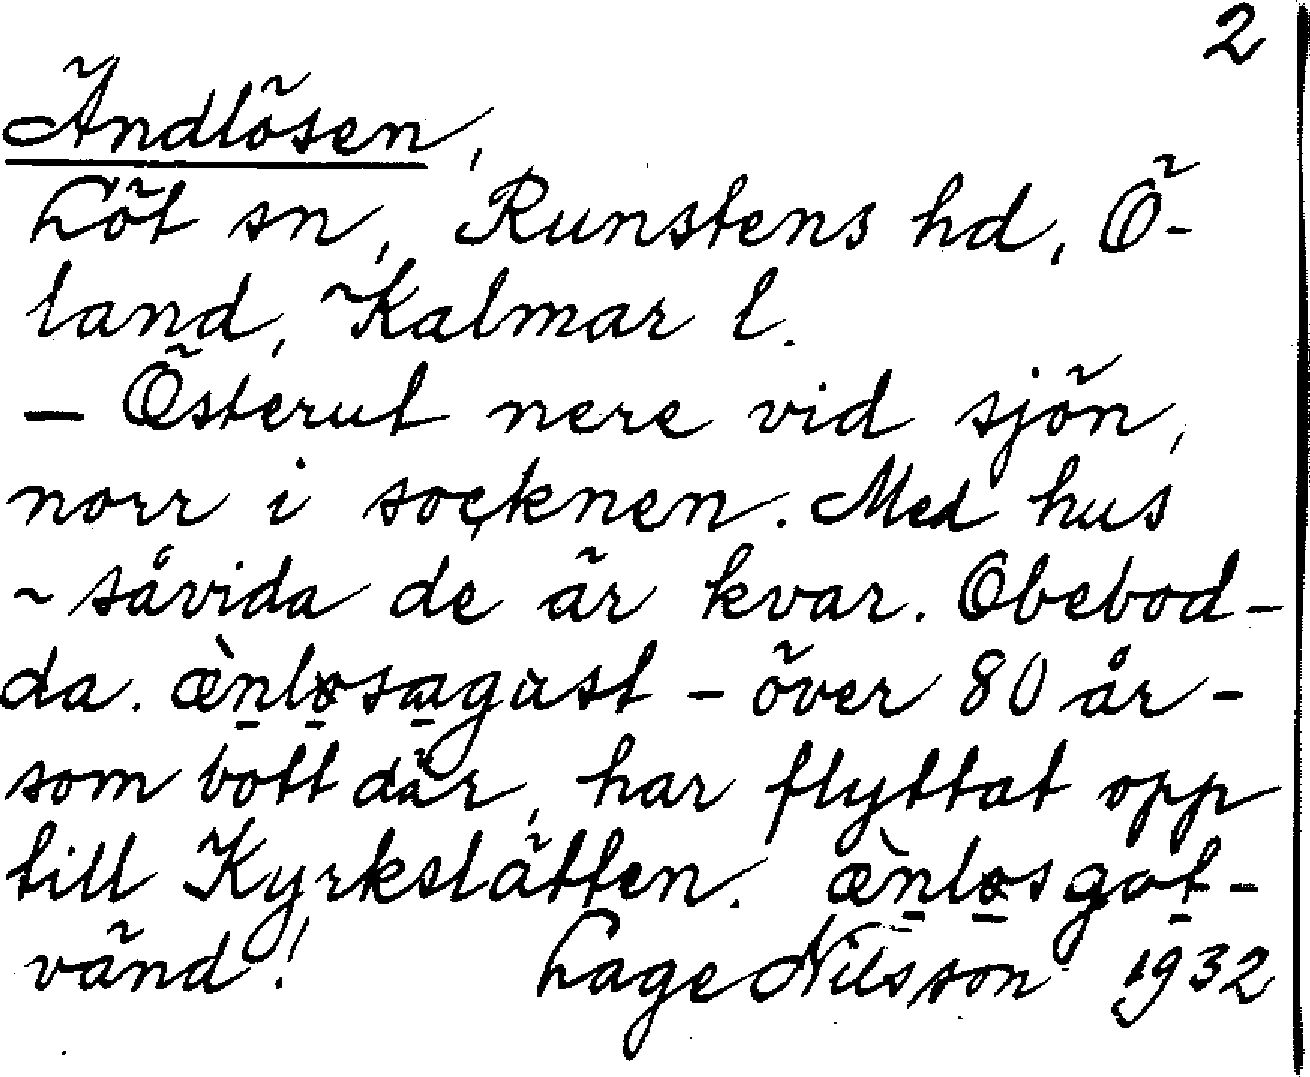 2
Ändlösen,
Löt sn, Runstens hd, Ö-
land, Kalmar l.
— Österut nere vid sjön,
norr i socknen. Med hus
~ såvida de är kvar. Obebod-
da. æ̀n̠lø̠sa̠gust – över 80 år –
som bott där, har flyttat opp
till Kyrkslätten. æ̀n̠lø̠s got̠-
vänd! Lage Nilsson 1932